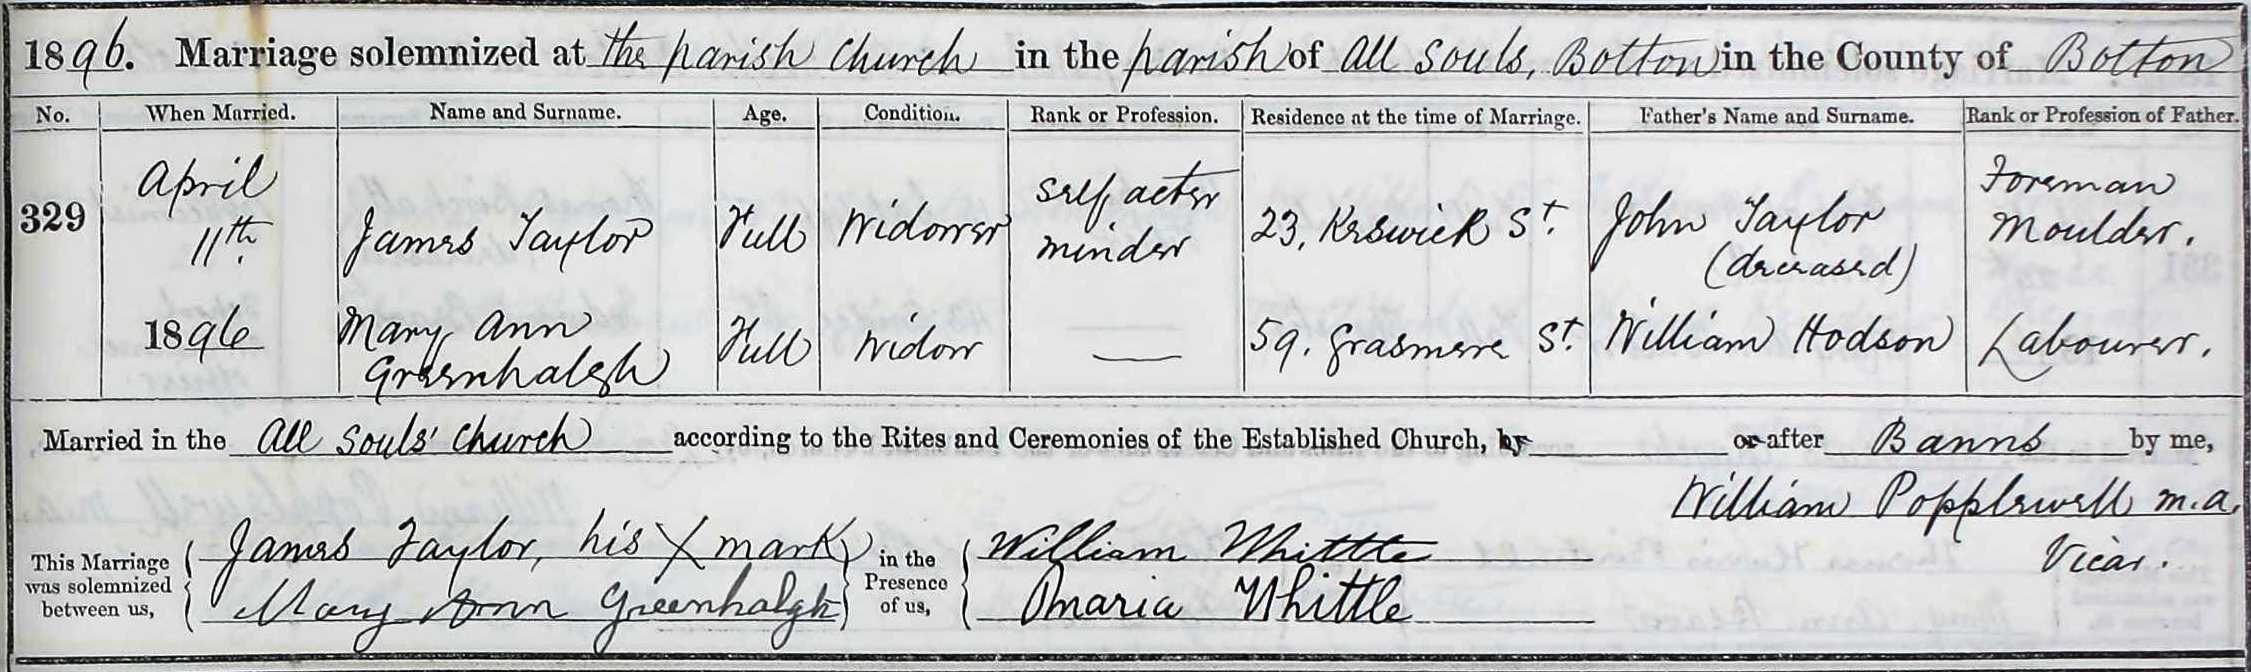 1896. Marriage solemnized at the parish church in the parish of All Souls, Bolton in the County of Bolton
No. When Married. Name and Surname. Age. Condition. Rank or Profession. Residence at the time of Marriage. Father's Name and Surname. Rank or Profession of Father.
329 April 11th. 1896 James Taylor Full Widower Self actor minder 23, Keswick St. John Taylor (deceased) Foreman Moulder.
Mary Ann Greenhalgh Full Widow — 59, Grasmere St. William Hodson Labourer.
Married in the All Souls' Church according to the Rites and Ceremonies of the Established Church, by or after Banns by me,
William Popplewell M.A.
Vicar.
This Marriage was solemnized between us, James Taylor, his X mark in the Presence of us, William Whittle
Mary Ann Greenhalgh Maria Whittle